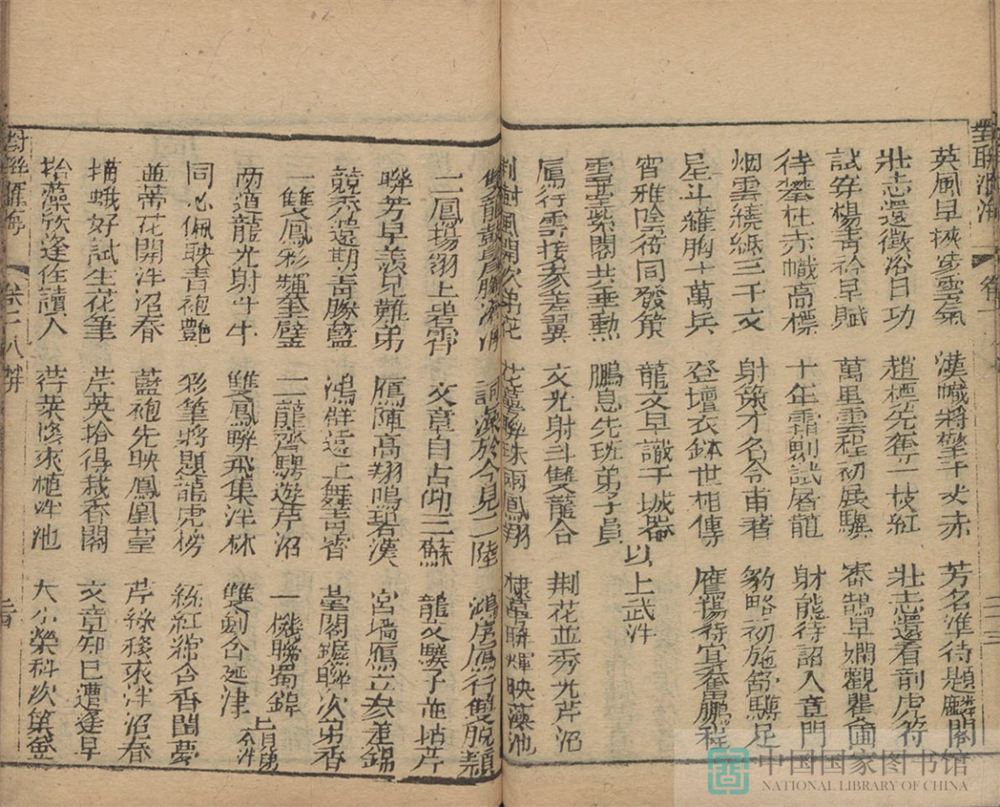 對聯
英風早挾雲霄氣 漢幟將擎千丈赤 芳名準待題麟閣
壯志還徵浴日功 趙標先奪一枝紅 壯志還看剖虎符
試穿楊青衿早賦 萬里雲程初展驥 審鵠早嫻觀瞿圃
待攀桂赤幟高標 十年霜劍試屠龍 射熊待詔入章門
烟雲繞紙三千文 射策才名今甫著 豹略初施舒驥足
星斗羅胸十萬兵 登壇衣鉢世相傳 鷹揚待宜奮鵬程
宵雅陰符同發策 龍文早識干城器 以上武泮
雲臺紫閣共垂勳 鵬息先班弟子員
鴈行雲接參差翼 文光射斗雙龍合 荆花並秀光芹沼
荆樹風開次第花 兩鳳翔 棣萼聯輝映藻池
二鳳揚翎上碧霄 於今見二陸 鴻序鴈行雙脫穎
聯芳早羨兄難弟 文章自古問三蘇 龍文驥子並拈芹
競秀還期青勝藍 鴈陣高翔鳴碧漢 宮墻鴈立參差錦
一雙鳳彩輝奎璧 鴻群逵上舞 臺閣聯次弟香
兩道龍光射斗牛 二龍齊騁遊芹沼 一機聯蜀錦
同心佩映青袍艷 雙鳳聯飛集泮林 雙劍合延津
並蒂花開泮沼春 彩筆將題龍虎榜 絲紅綰合香閨夢
描蛾好試生花筆 藍袍先映鳳凰 芹綠移來泮沼春
拾藻欣逢佳讀人 芹英拾得栽香閣 文章知已遭逢早
對聯 卷十八 荇菜修來植泮池 大小榮科次第